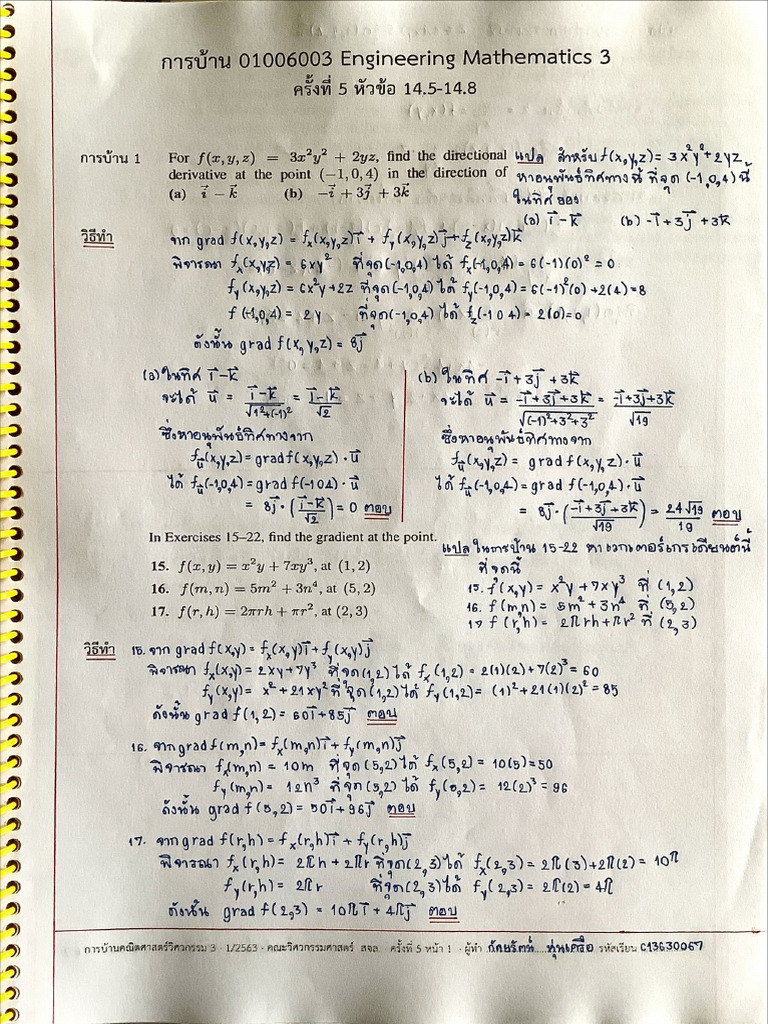 การบ้าน 01006003 Engineering Mathematics 3
ครั้งที่ 5 หัวข้อ 14.5-14.8
การบ้าน 1 For f(x, y, z) = 3x²y² + 2yz, find the directional
derivative at the point (−1, 0, 4) in the direction of
(a) i⃗ − k⃗ (b) −i⃗ + 3j⃗ + 3k⃗
แปล สำหรับ f(x,y,z) = 3x²y²+2yz
หาอนุพันธ์ทิศทางนี้ ที่จุด (-1,0,4) นี้
ในทิศของ
(a) i⃗-k⃗ (b) -i⃗+3j⃗+3k⃗
วิธีทำ จาก grad f(x,y,z) = fx(x,y,z)i⃗ + fy(x,y,z)j⃗ + fz(x,y,z)k⃗
พิจารณา fx(x,y,z) = 6xy² ที่จุด(-1,0,4) ได้ fx(-1,0,4) = 6(-1)(0)² = 0
fy(x,y,z) = 6x²y+2z ที่จุด(-1,0,4) ได้ fy(-1,0,4) = 6(-1)²(0)+2(4)=8
f(-1,0,4) = 2y ที่จุด(-1,0,4) ได้ fz(-1 0 4) = 2(0)=0
ดังนั้น grad f(x,y,z) = 8j⃗
(a) ในทิศ i⃗-k⃗
จะได้ u⃗ = (i⃗-k⃗)/√(1²+(-1)²) = (i⃗-k⃗)/√2
ซึ่งหาอนุพันธ์ทิศทางจาก
fu⃗(x,y,z) = grad f(x,y,z)·u⃗
ได้ fu⃗(-1,0,4) = grad f(-1 0 4)·u⃗
= 8j⃗·((i⃗-k⃗)/√2) = 0 ตอบ
(b) ในทิศ -i⃗+3j⃗+3k⃗
จะได้ u⃗ = (-i⃗+3j⃗+3k⃗)/√((-1)²+3²+3²) = (-i⃗+3j⃗+3k⃗)/√19
ซึ่งหาอนุพันธ์ทิศทางจาก
fu⃗(x,y,z) = grad f(x,y,z)·u⃗
ได้ fu⃗(-1,0,4) = grad f(-1,0,4)·u⃗
= 8j⃗·((-i⃗+3j⃗+3k⃗)/√19) = 24√19/19 ตอบ
In Exercises 15–22, find the gradient at the point.
15. f(x, y) = x²y + 7xy³, at (1, 2)
16. f(m, n) = 5m² + 3n⁴, at (5, 2)
17. f(r, h) = 2πrh + πr², at (2, 3)
แปล ในการบ้าน 15-22 หาเวกเตอร์เกรเดียนต์นี้
ที่จุดนี้
15. f(x,y) = x²y+7xy³ ที่ (1,2)
16. f(m,n) = 5m²+3n⁴ ที่ (5,2)
17 f(r,h) = 2πrh+πr² ที่ (2,3)
วิธีทำ 15. จาก grad f(x,y) = fx(x,y)i⃗ + fy(x,y)j⃗
พิจารณา fx(x,y) = 2xy+7y³ ที่จุด(1,2) ได้ fx(1,2) = 2(1)(2)+7(2)³ = 60
fy(x,y) = x²+21xy² ที่จุด(1,2) ได้ fy(1,2) = (1)²+21(1)(2)² = 85
ดังนั้น grad f(1,2) = 60i⃗+85j⃗ ตอบ
16. จาก grad f(m,n) = fx(m,n)i⃗ + fy(m,n)j⃗
พิจารณา fx(m,n) = 10m ที่จุด(5,2) ได้ fx(5,2) = 10(5) = 50
fy(m,n) = 12n³ ที่จุด(5,2) ได้ fy(5,2) = 12(2)³ = 96
ดังนั้น grad f(5,2) = 50i⃗+96j⃗ ตอบ
17. จาก grad f(r,h) = fx(r,h)i⃗ + fy(r,h)j⃗
พิจารณา fx(r,h) = 2πh+2πr ที่จุด(2,3) ได้ fx(2,3) = 2π(3)+2π(2) = 10π
fy(r,h) = 2πr ที่จุด(2,3) ได้ fy(2,3) = 2π(2) = 4π
ดังนั้น grad f(2,3) = 10πi⃗ + 4πj⃗ ตอบ
การบ้านคณิตศาสตร์วิศวกรรม 3 · 1/2563 · คณะวิศวกรรมศาสตร์ สจล. · ครั้งที่ 5 หน้า 1 · ผู้ทำ รหัสเรียน C13630067